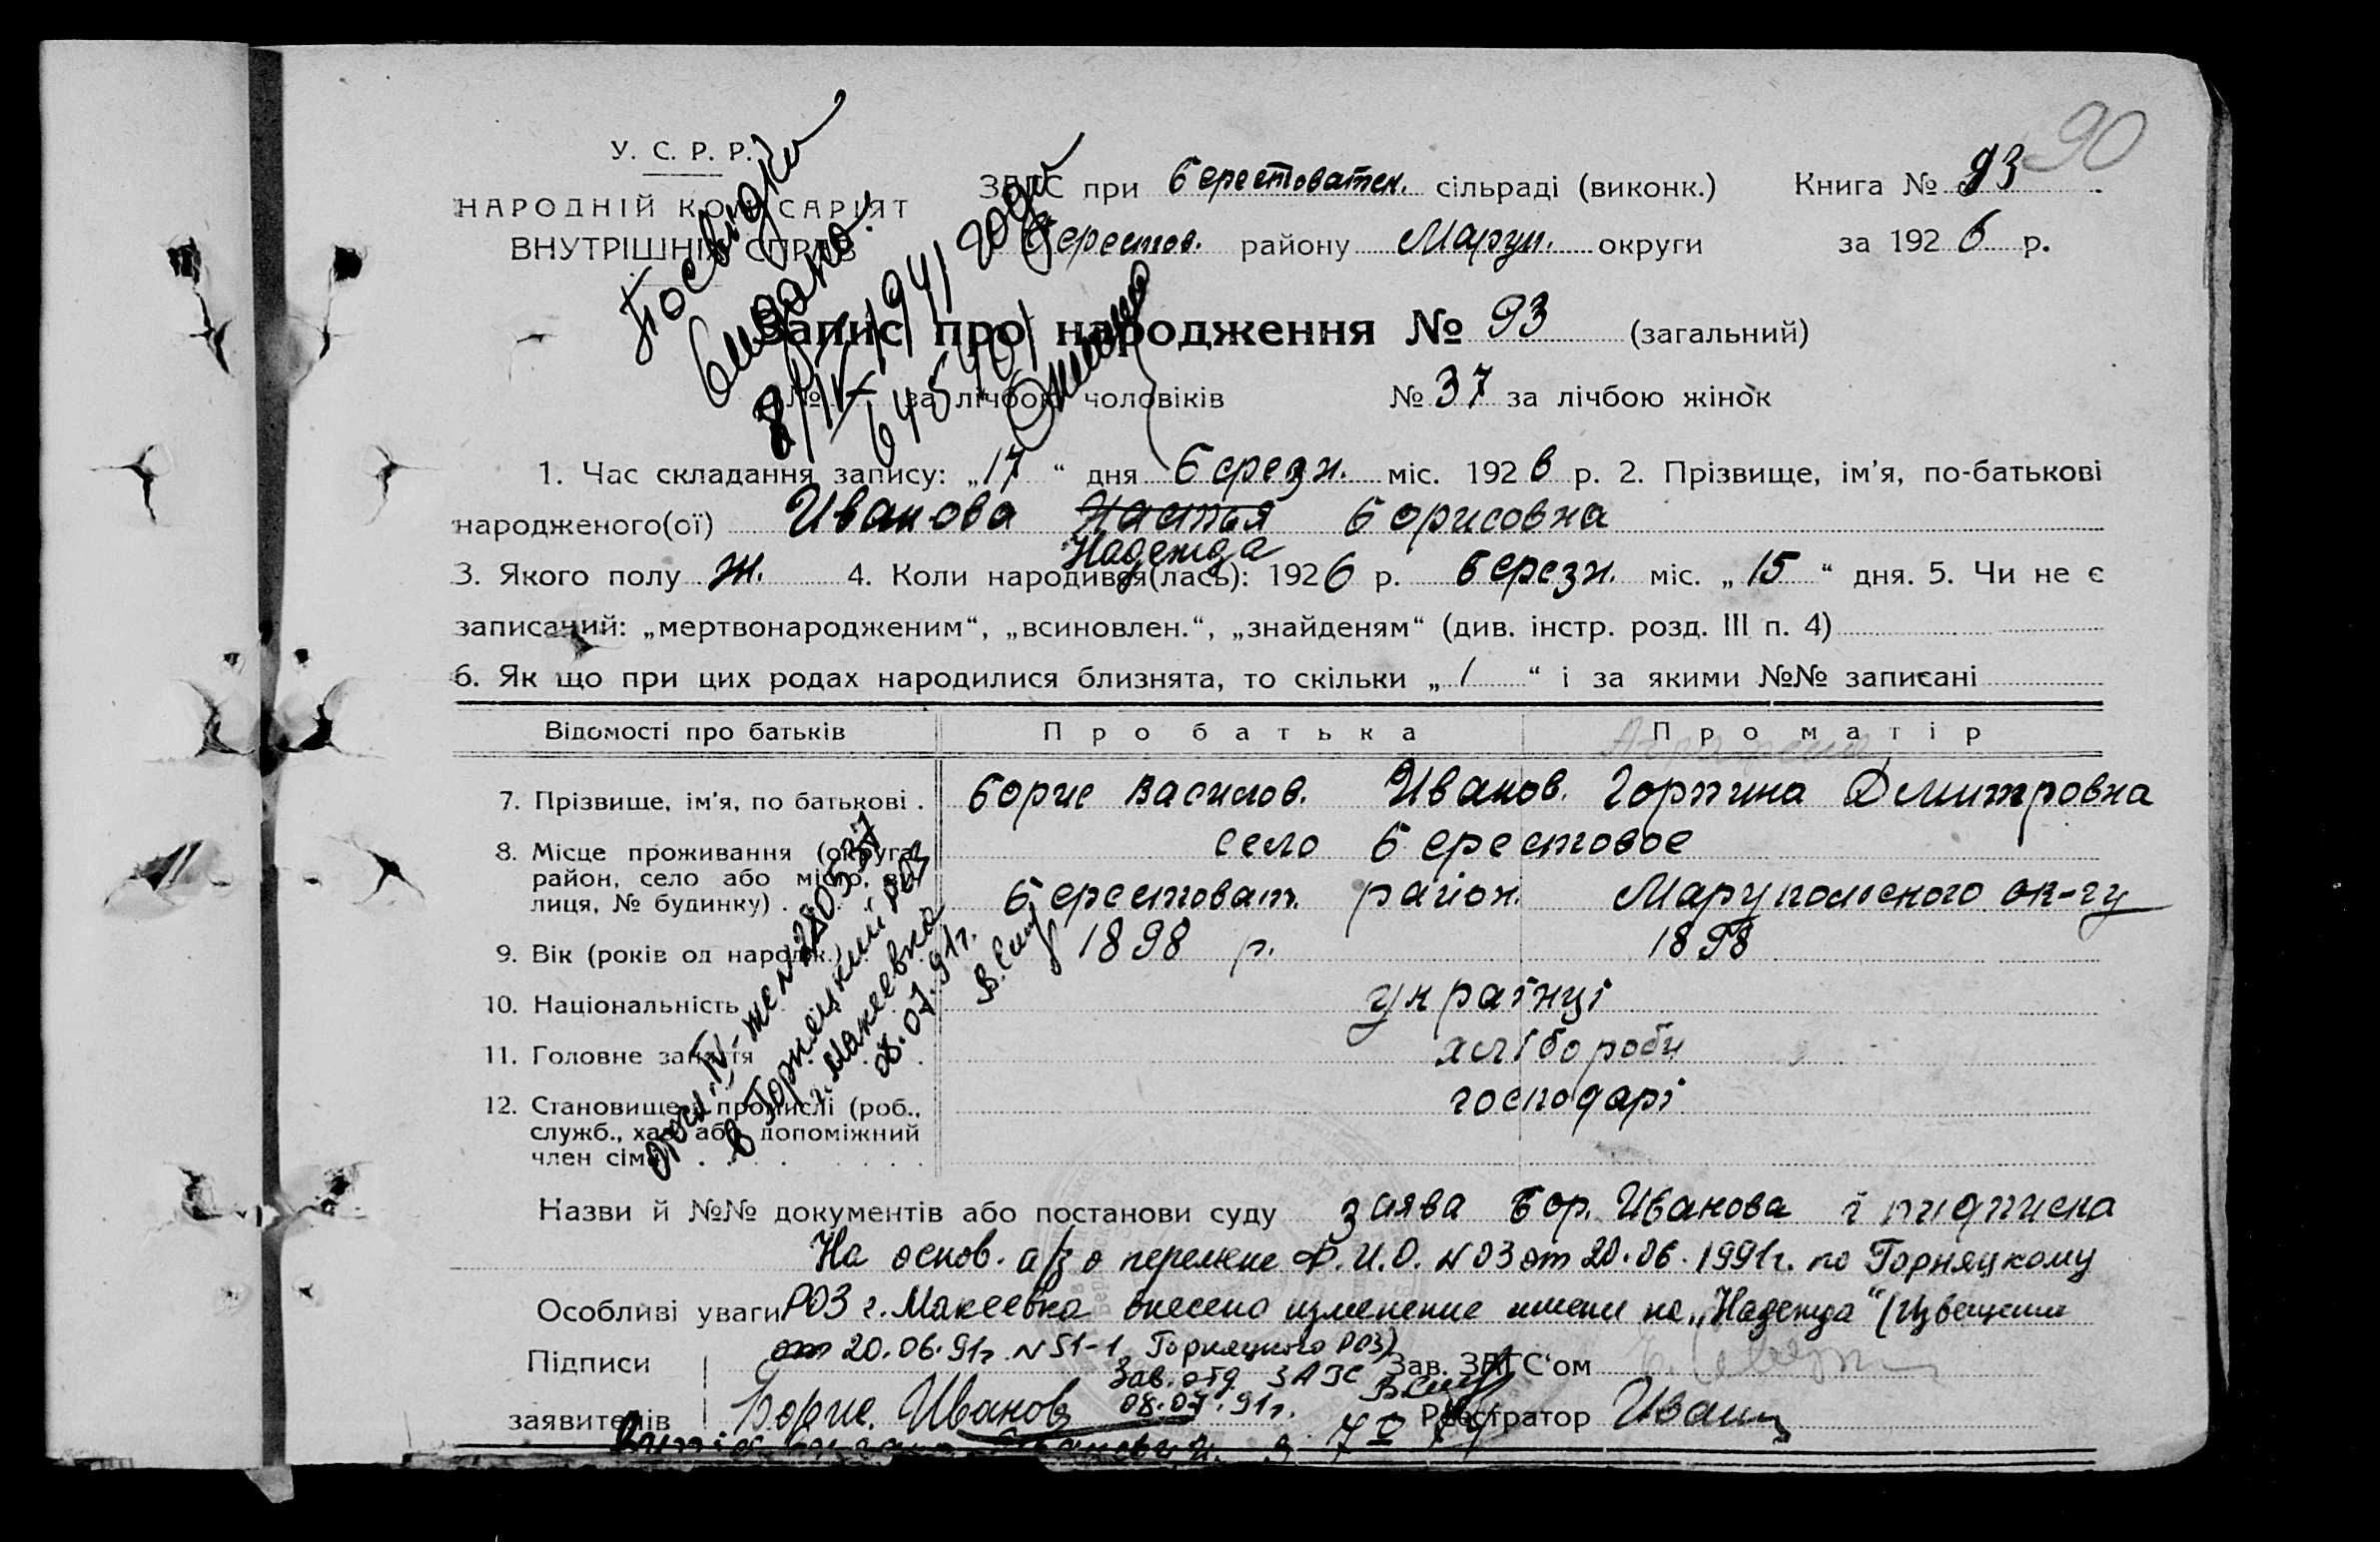 90
У. С. Р. Р.
НАРОДНІЙ КОМІСАРІЯТ
ВНУТРІШНІХ СПРАВ
ЗАГС при Берестоватск. сільраді (виконк.) Книга № 93
Берестов. району Маруп. округи за 1926 р.
Посвідка
видана
8/IV 1941 года
Запис про народження № 93 (загальний)
№ за лічбою чоловіків № 37 за лічбою жінок
1. Час складання запису: „17“ дня березн. міс. 1926 р. 2. Прізвище, ім’я, по-батькові
народженого(ої) Иванова Настья Борисовна
Надежда
3. Якого полу ж. 4. Коли народився(лась): 1926 р. березн. міс. „15“ дня. 5. Чи не є
записаний: „мертвонародженим“, „всиновлен.“, „знайденям“ (див. інстр. розд. III п. 4)
6. Як що при цих родах народилися близнята, то скільки „1“ і за якими №№ записані
Відомості про батьків Про батька Про матір
7. Прізвище, ім’я, по батькові . Борис Василов. Иванов. Горпина Дмитровна
8. Місце проживання (округа, село Берестовое
район, село або місто, ву-
лиця, № будинку) . Берестоват. район. Марупольского ок-гу
9. Вік (років од народж.) . 1898 р. 1898
10. Національність українці
11. Головне заняття хлібороби
12. Становище в промислі (роб., господарі
служб., хаз. або допоміжний
член сім’ї)
IV-же N 280537
в Горняцкий РОЗ
г. Макеевка
08.07.91г.
Назви й №№ документів або постанови суду заява Бор. Иванова і пидписка
На основ. а/з о перемене Ф.И.О. N 03 от 20.06.1991г. по Горняцкому
Особливі уваги РОЗ г. Макеевка внесено изменение имени на „Надежда“ (Извещение
от 20.06.91г. N 51-1 Горняцкого РОЗ)
Підписи Зав. отд ЗАГС Зав. ЗАГС‘ом
заявителів Борис. Иванов 08.07.91г. Реєстратор